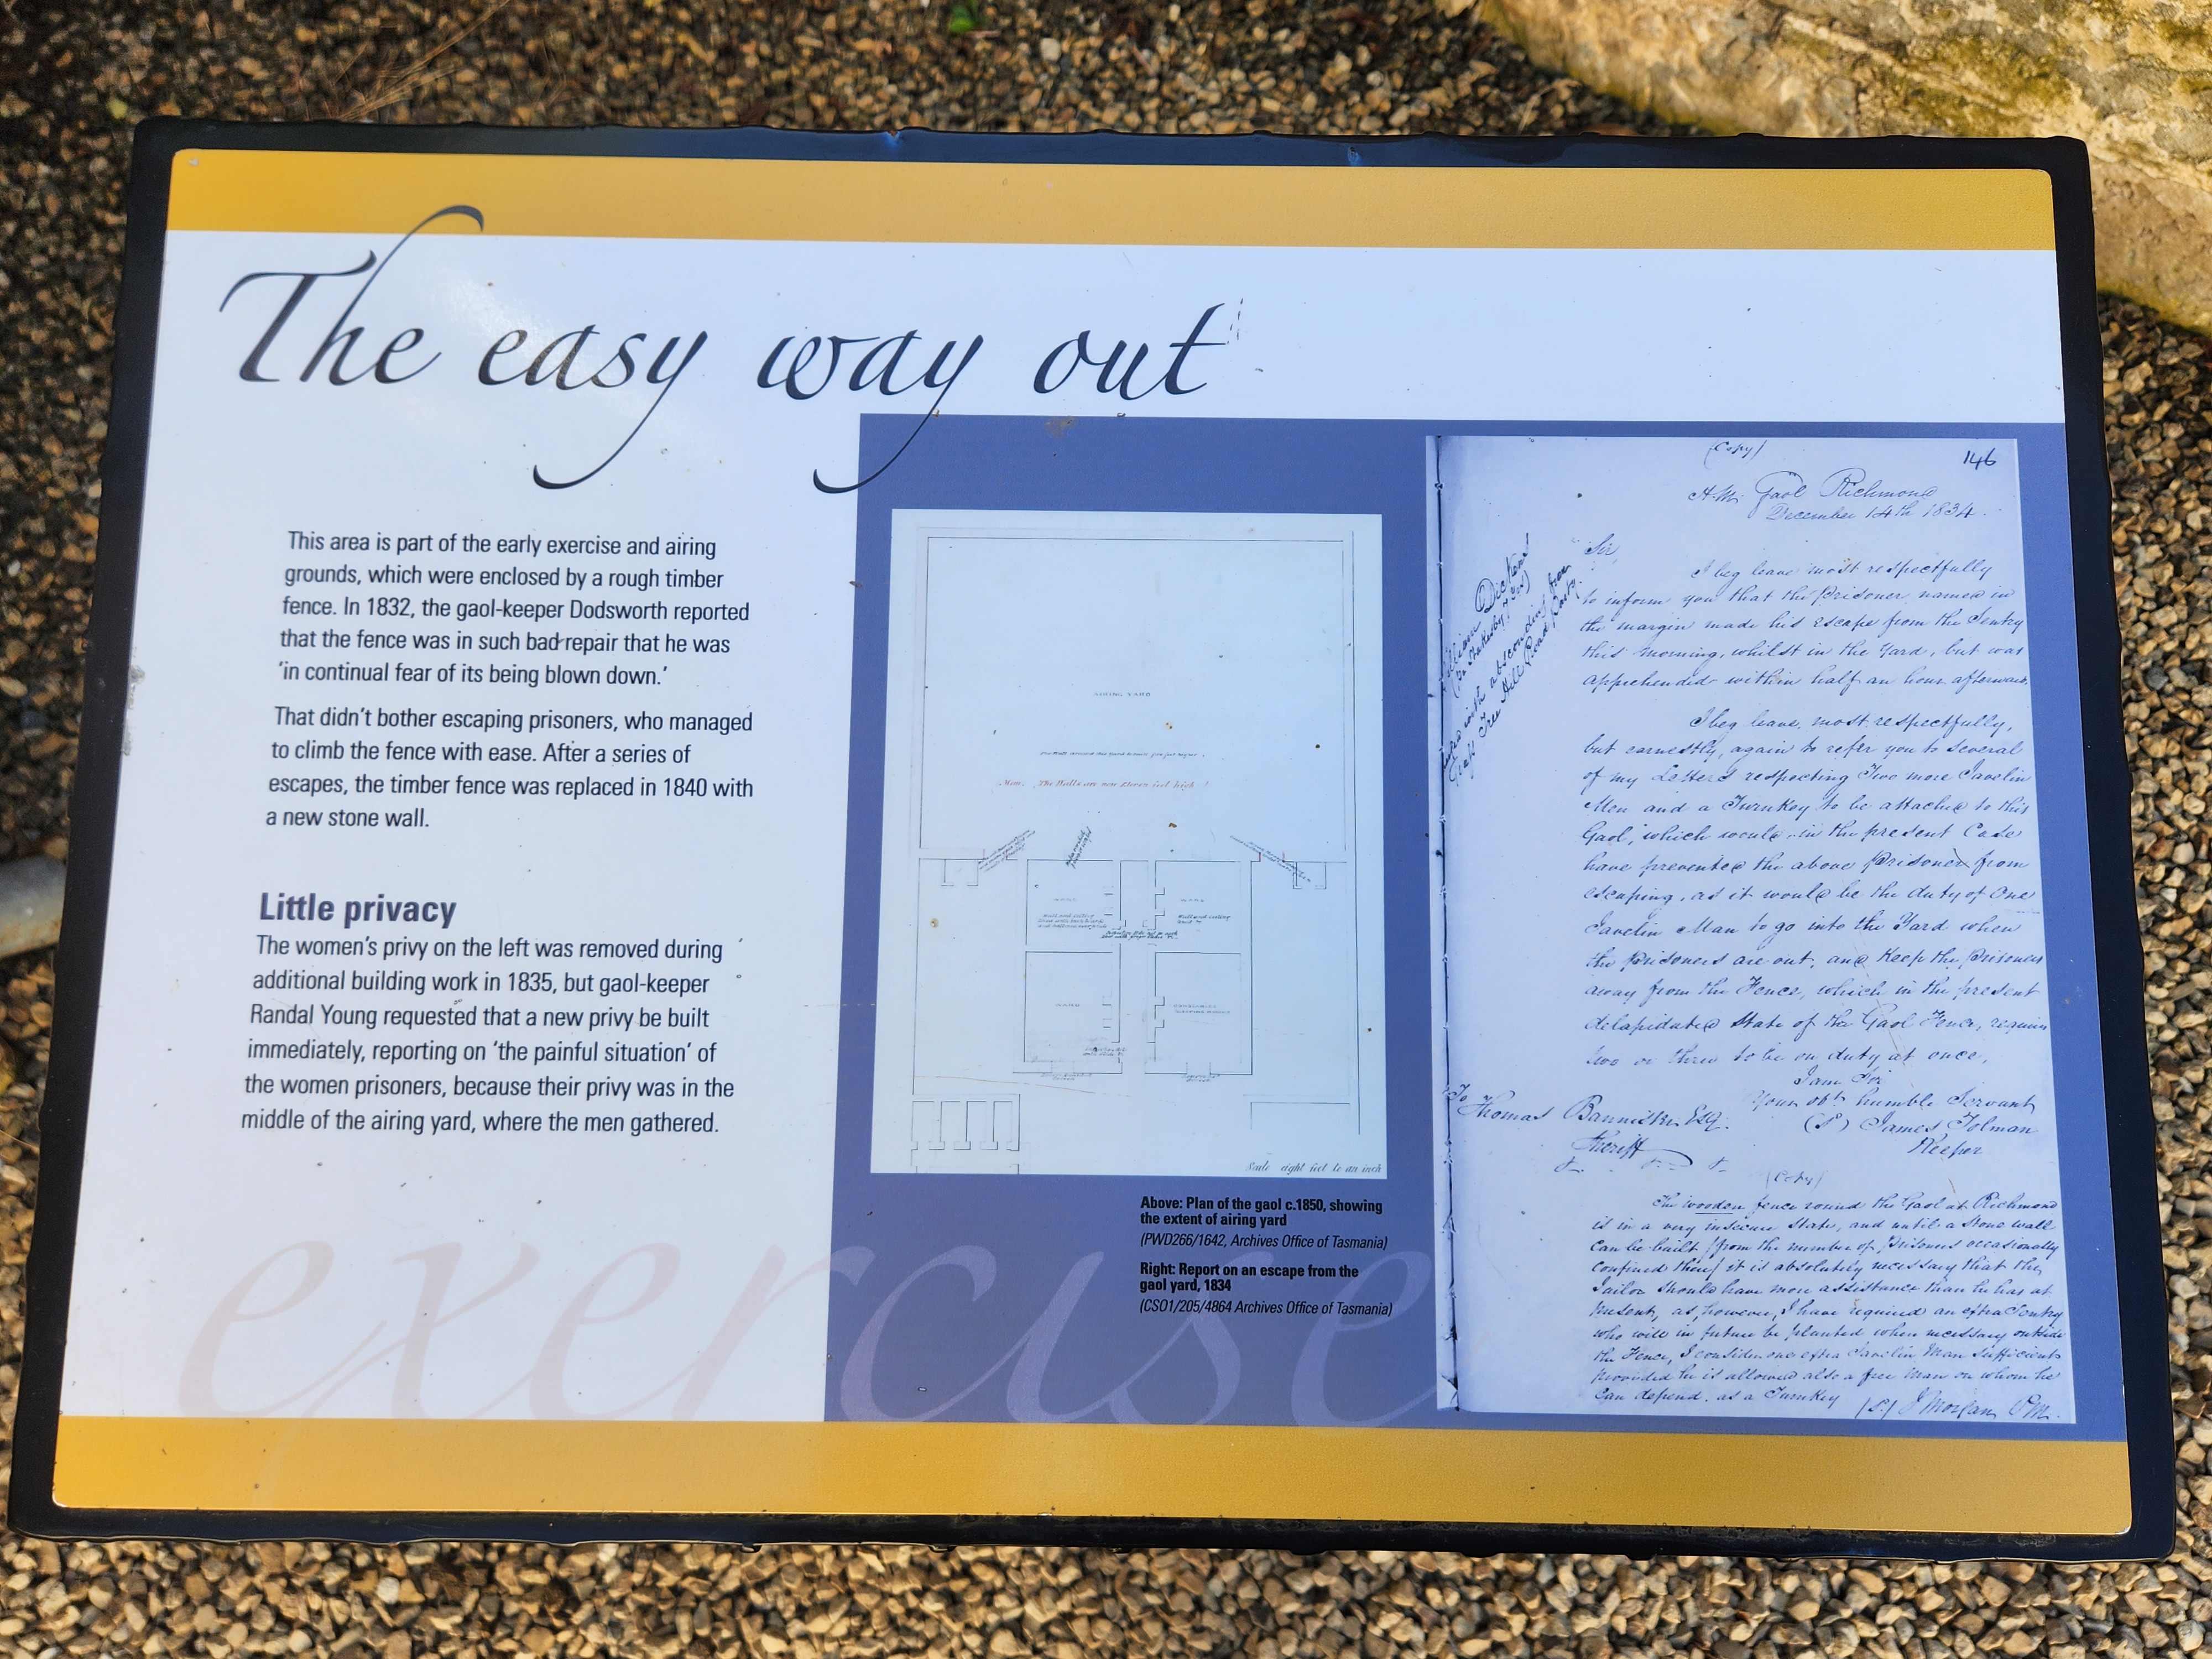 The easy way out
This area is part of the early exercise and airing
grounds, which were enclosed by a rough timber
fence. In 1832, the gaol-keeper Dodsworth reported
that the fence was in such bad repair that he was
'in continual fear of its being blown down.'
That didn't bother escaping prisoners, who managed
to climb the fence with ease. After a series of
escapes, the timber fence was replaced in 1840 with
a new stone wall.
Little privacy
The women's privy on the left was removed during
additional building work in 1835, but gaol-keeper
Randal Young requested that a new privy be built
immediately, reporting on 'the painful situation' of
the women prisoners, because their privy was in the
middle of the airing yard, where the men gathered.
exercise
AIRING YARD
The Walls are now Eleven feet high
Scale eight feet to an inch
Above: Plan of the gaol c.1850, showing
the extent of airing yard
(PWD266/1642, Archives Office of Tasmania)
Right: Report on an escape from the
gaol yard, 1834
(CSO1/205/4864 Archives Office of Tasmania)
(Copy)
146
H.M. Gaol Richmond
December 14th 1834.
William Dickens
absconding from
Grass Tree Hill Road Party.
Sir,
I beg leave most respectfully
to inform you that the Prisoner named in
the margin made his escape from the Sentry
this morning, whilst in the Yard, but was
apprehended within half an hour afterwards.
I beg leave, most respectfully,
but earnestly, again to refer you to several
of my Letters respecting Two more Javelin
Men and a Turnkey to be attached to this
Gaol, which would, in the present Case
have prevented the above Prisoner from
escaping, as it would be the duty of One
Javelin Man to go into the Yard when
the Prisoners are out, and Keep the Prisoners
away from the Fence, which in the present
delapidated State of the Gaol Fence, requires
two or three to be on duty at once,
I am Sir
Your obt humble Servant
(S) James Tolman
Keeper
To
Thomas Bannister Esq.
Sheriff
(Copy)
The wooden fence round the Gaol at Richmond
is in a very insecure State, and until a Stone wall
can be built (from the number of Prisoners occasionally
confined there) it is absolutely necessary that the
Jailor should have more assistance than he has at
present, as, however, I have required an extra Sentry
who will in future be planted when necessary outside
the Fence, I consider one extra Javelin Man sufficient
provided he is allowed also a free Man on whom he
can depend, as a Turnkey
(S.) J Morgan P.M.